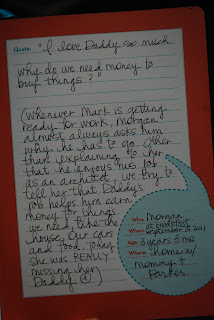 Quote: "I love Daddy so much
why do we need money to
buy things?"
(Whenever Mark is getting
ready for work, Morgan
almost always asks him
why he has to go. Other
than explaining to her
that he enjoys his job
as an architect, we try to
tell her that Daddy's
job helps him earn
money for things
we need, like the
house, our cars
and food. Today
she was REALLY
missing her
Daddy :)
Who: Morgan
@ breakfast
When: September 15, 2011
Age: 3 years 3 mo
Where: home w/
mommy +
Parker